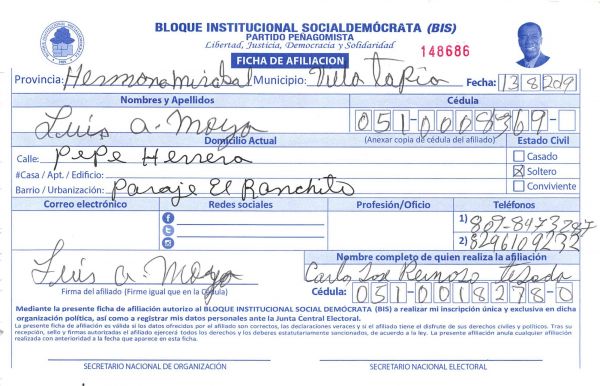 BLOQUE INSTITUCIONAL SOCIALDEMÓCRATA (BIS)
PARTIDO PEÑAGOMISTA
Libertad, Justicia, Democracia y Solidaridad
148686
FICHA DE AFILIACION
Provincia: Hermana Mirabal Municipio: Villa Tapia Fecha: 13 8 2019
Nombres y Apellidos Cédula
Luis A. Moya 051-0008369-
Domicilio Actual (Anexar copia de cédula del afiliado) Estado Civil
Calle: Pepe Herrera
Casado
#Casa / Apt. / Edificio: Soltero
Barrio / Urbanización: Paraje El Ranchito Conviviente
Correo electrónico Redes sociales Profesión/Oficio Teléfonos
1) 809-8473287
2) 8296109232
Nombre completo de quien realiza la afiliación
Luis A. Moya Carlos José Reinoso Tejada
Firma del afiliado (Firme igual que en la Cédula) Cédula: 051-0018278-0
Mediante la presente ficha de afiliación autorizo al BLOQUE INSTITUCIONAL SOCIAL DEMÓCRATA (BIS) a realizar mi inscripción única y exclusiva en dicha
organización política, así como a registrar mis datos personales ante la Junta Central Electoral.
La presente ficha de afiliación es válida si los datos ofrecidos por el afiliado son correctos, las declaraciones veraces y si el afiliado tiene el disfrute de sus derechos civiles y políticos. Tras su
recepción, sello y firmas autorizadas el afiliado ejercerá todos los derechos y los deberes estatutariamente sancionados, de acuerdo a la ley. La presente afiliación anula cualquier afiliación
realizada con anterioridad a la fecha que aparece en esta ficha.
SECRETARIO NACIONAL DE ORGANIZACIÓN SECRETARIO NACIONAL ELECTORAL